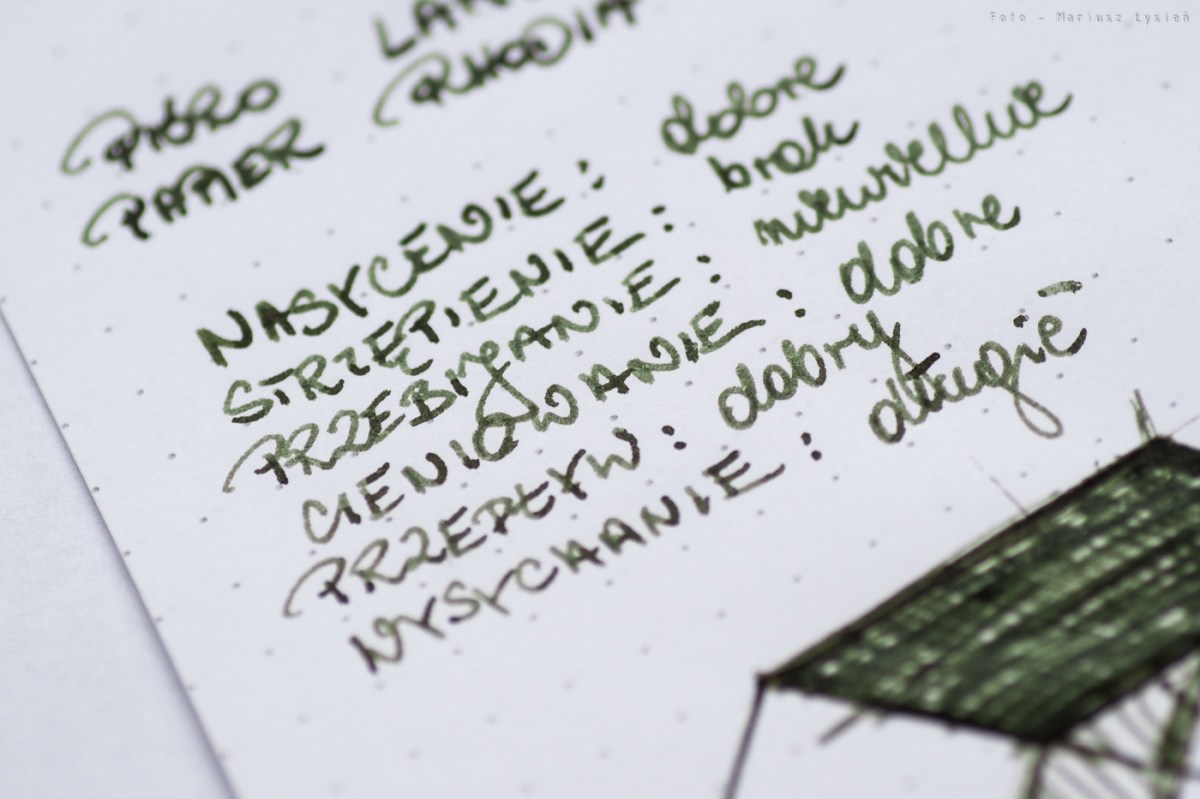 Foto - Mariusz Łysień
PIÓRO
PAPIER RHODIA
NASYCENIE: dobre
STRZĘPIENIE: brak
PRZEBIJANIE: niewielkie
CIENIOWANIE: dobre
PRZEPŁYW: dobry
WYSYCHANIE: długie